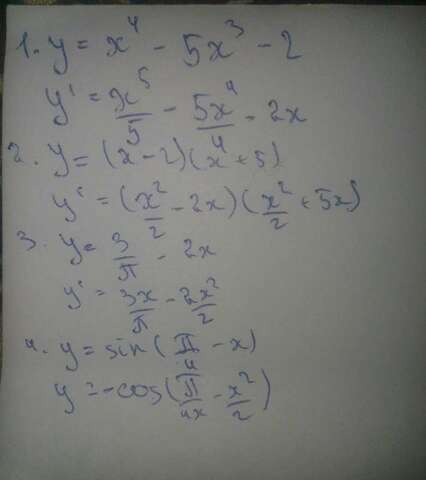 1. y = x⁴ - 5x³ - 2
y' = x⁵/5 - 5x⁴/4 - 2x
2. y = (x - 2)(x + 5)
y' = (x²/2 - 2x)(x²/2 + 5x)
3. y = 3/π - 2x
y' = 3x/π - 2x²/2
4. y = sin(π/4 - x)
y = -cos(π/4x - x²/2)